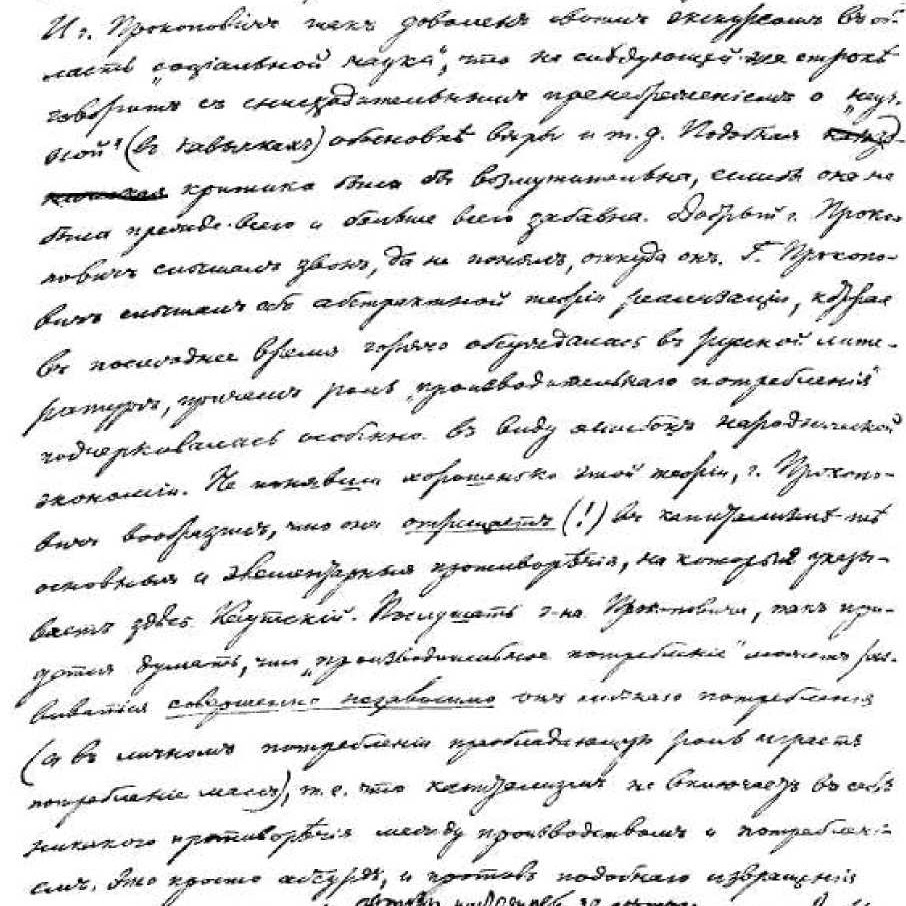 И г. Прокоповичъ такъ доволенъ своимъ экскурсомъ въ об-
ласть „соціальной науки“, что на слѣдующей же строкѣ
говоритъ съ снисходительнымъ пренебреженіемъ о „науч-
ной“ (въ кавычкахъ) обстановкѣ вѣры и т. д. Подобная
критика была бы возмутительна, еслибъ она не
была прежде всего и больше всего забавна. Добрый г. Проко-
повичъ слышалъ звонъ, да не понялъ, откуда онъ. Г. Прокопо-
вичъ слышалъ объ абстрактной теоріи реализаціи, которая
въ послѣднее время горячо обсуждалась въ русской лите-
ратурѣ, причемъ роль „производительнаго потребленія“
подчеркивалась особенно въ виду ошибокъ народнической
экономіи. Не понявши хорошенько этой теоріи, г. Прокопо-
вичъ вообразилъ, что она отрицаетъ (!) въ капитализмѣ тѣ
основныя и элементарныя противорѣчія, на которыя указы-
ваетъ здѣсь Каутскій. Послушать г-на Прокоповича, такъ при-
дется думать, что „производительное потребленіе“ можетъ раз-
виваться совершенно независимо отъ личнаго потребленія
(а въ личномъ потребленіи преобладающую роль играетъ
потребленіе массъ), т. е. что капитализмъ не включаетъ въ себѣ
никакого противорѣчія между производствомъ и потребленi-
емъ. Это просто абсурдъ, и противъ подобнаго извращенія